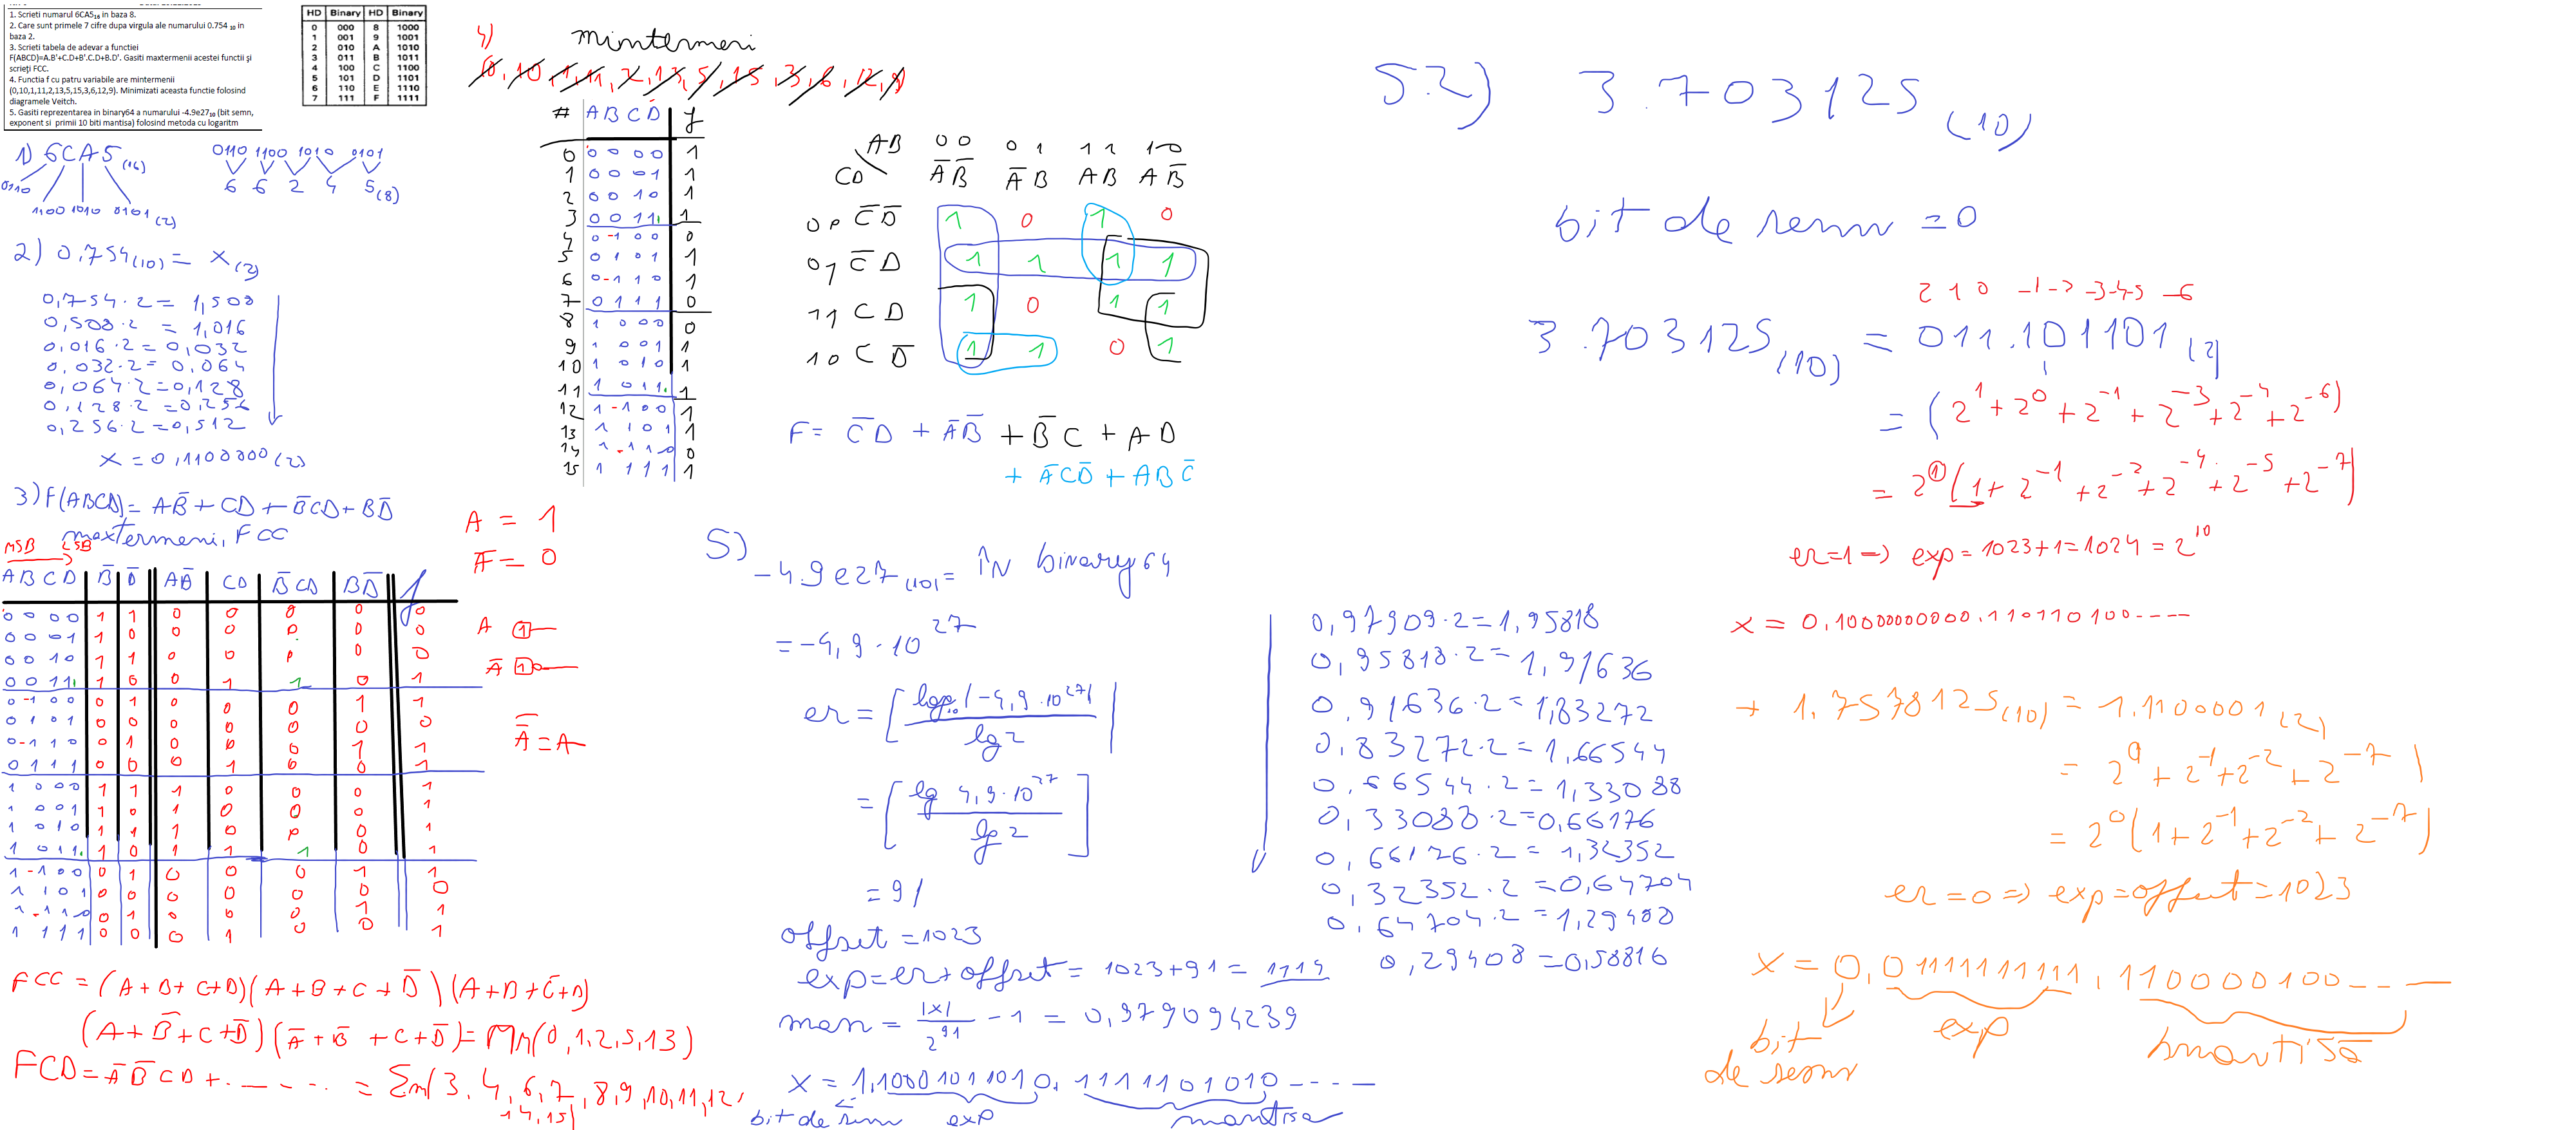 1. Scrieti numarul 6CA5₁₆ in baza 8.
2. Care sunt primele 7 cifre dupa virgula ale numarului 0.754 ₁₀ in
baza 2.
3. Scrieti tabela de adevar a functiei
F(ABCD)=A.B'+C.D+B'.C.D+B.D'. Gasiti maxtermenii acestei functii şi
scrieţi FCC.
4. Functia f cu patru variabile are mintermenii
(0,10,1,11,2,13,5,15,3,6,12,9). Minimizati aceasta functie folosind
diagramele Veitch.
5. Gasiti reprezentarea in binary64 a numarului -4.9e27₁₀ (bit semn,
exponent si primii 10 biti mantisa) folosind metoda cu logaritm
HD Binary HD Binary
0 000 8 1000
1 001 9 1001
2 010 A 1010
3 011 B 1011
4 100 C 1100
5 101 D 1101
6 110 E 1110
7 111 F 1111
1) 6CA5(16)
0110
1100 1010 0101 (2)
0110 1100 1010 0101
6 6 2 4 5(8)
2) 0,754(10) = x(2)
0,754·2 = 1,508
0,508·2 = 1,016
0,016·2 = 0,032
0,032·2 = 0,064
0,064·2 = 0,128
0,128·2 = 0,256
0,256·2 = 0,512
x = 0,1100000(2)
3) F(ABCD) = AB̅ + CD + B̅CD + BD̅
maxtermeni, FCC
MSB LSB
A B C D B̅ D̅ AB̅ CD B̅CD BD̅ f
0 0 0 0 1 1 0 0 0 0 0
0 0 0 1 1 0 0 0 0 0 0
0 0 1 0 1 1 0 0 0 0 0
0 0 1 1 1 0 0 1 1 0 1
0 1 0 0 0 1 0 0 0 1 1
0 1 0 1 0 0 0 0 0 0 0
0 1 1 0 0 1 0 0 0 1 1
0 1 1 1 0 0 0 1 0 0 1
1 0 0 0 1 1 1 0 0 0 1
1 0 0 1 1 0 1 0 0 0 1
1 0 1 0 1 1 1 0 0 0 1
1 0 1 1 1 0 1 1 1 0 1
1 1 0 0 0 1 0 0 0 1 1
1 1 0 1 0 0 0 0 0 0 0
1 1 1 0 0 1 0 0 0 1 1
1 1 1 1 0 0 0 1 0 0 1
A = 1
A̅ = 0
A 1
A̅ 1
A̿ = A
FCC = (A+B+C+D)(A+B+C+D̅)(A+B+C̅+D)
(A+B̅+C+D̅)(A̅+B̅+C+D̅) = ΠM(0,1,2,5,13)
FCD = A̅B̅CD + . — — . . = Σm(3, 4, 6, 7, 8, 9, 10, 11, 12,
14, 15)
4) mintermeni
0, 10, 1, 11, 2, 13, 5, 15, 3, 6, 12, 9
# A B C D f
0 0 0 0 0 1
1 0 0 0 1 1
2 0 0 1 0 1
3 0 0 1 1 1
4 0 1 0 0 0
5 0 1 0 1 1
6 0 1 1 0 1
7 0 1 1 1 0
8 1 0 0 0 0
9 1 0 0 1 1
10 1 0 1 0 1
11 1 0 1 1 1
12 1 1 0 0 1
13 1 1 0 1 1
14 1 1 1 0 0
15 1 1 1 1 1
AB 00 01 11 10
CD A̅B̅ A̅B AB AB̅
00 C̅D̅ 1 0 1 0
01 C̅D 1 1 1 1
11 CD 1 0 1 1
10 CD̅ 1 1 0 1
F = C̅D + A̅B̅ + B̅C + AD
+ A̅CD̅ + ABC̅
5)
-4.9e27(10) = în binary64
= -4,9·10^27
er = [log₁₀|-4,9·10^27| / lg 2]
= [lg 4,9·10^27 / lg 2]
= 91
offset = 1023
exp = er + offset = 1023 + 91 = 1114
man = |x| / 2^91 - 1 = 0,979094239
x = 1,10001011010, 1111101010 - - - -
bit de semn exp mantisa
0,97909·2 = 1,95818
0,95818·2 = 1,91636
0,91636·2 = 1,83272
0,83272·2 = 1,66544
0,66544·2 = 1,33088
0,33088·2 = 0,66176
0,66176·2 = 1,32352
0,32352·2 = 0,64704
0,64704·2 = 1,29408
0,29408 = 0,58816
5.2) 3.703125(10)
bit de semn = 0
2 1 0 -1 -2 -3 -4 -5 -6
3.703125(10) = 011.101101(2)
= (2^1 + 2^0 + 2^-1 + 2^-3 + 2^-4 + 2^-6)
= 2^1(1 + 2^-1 + 2^-2 + 2^-4 + 2^-5 + 2^-7)
er = 1 => exp = 1023 + 1 = 1024 = 2^10
x = 0,10000000000.110110100 - - - -
→ 1.7578125(10) = 1.1100001(2)
= 2^0 + 2^-1 + 2^-2 + 2^-7)
= 2^0(1 + 2^-1 + 2^-2 + 2^-7)
er = 0 => exp = offset = 1023
x = 0,01111111111.110000100 - - —
bit
de semn
exp
mantisa